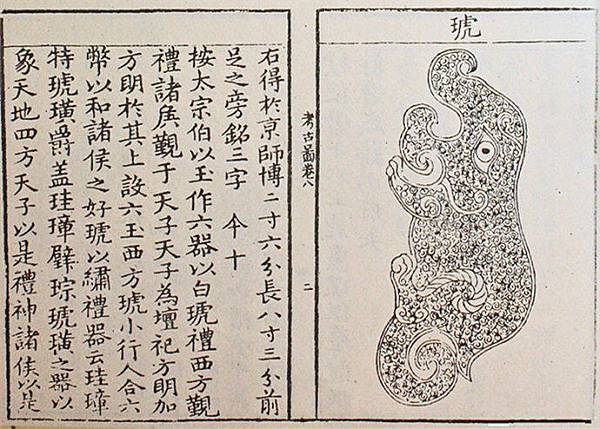 琥
考古啚卷八
二
右得於京師博二寸六分長八寸三分前
足之旁銘三字 今十
桉太宗伯以玉作六器以白琥禮西方覲
禮諸侯覲于天子天子為壇祀方明加
方明於其上設六玉西方琥小行人合六
幣以和諸侯之好琥以繡禮器云珪璋
特琥璜爵盖珪璋璧琮琥璜之器以
象天地四方天子以是禮神諸侯以是